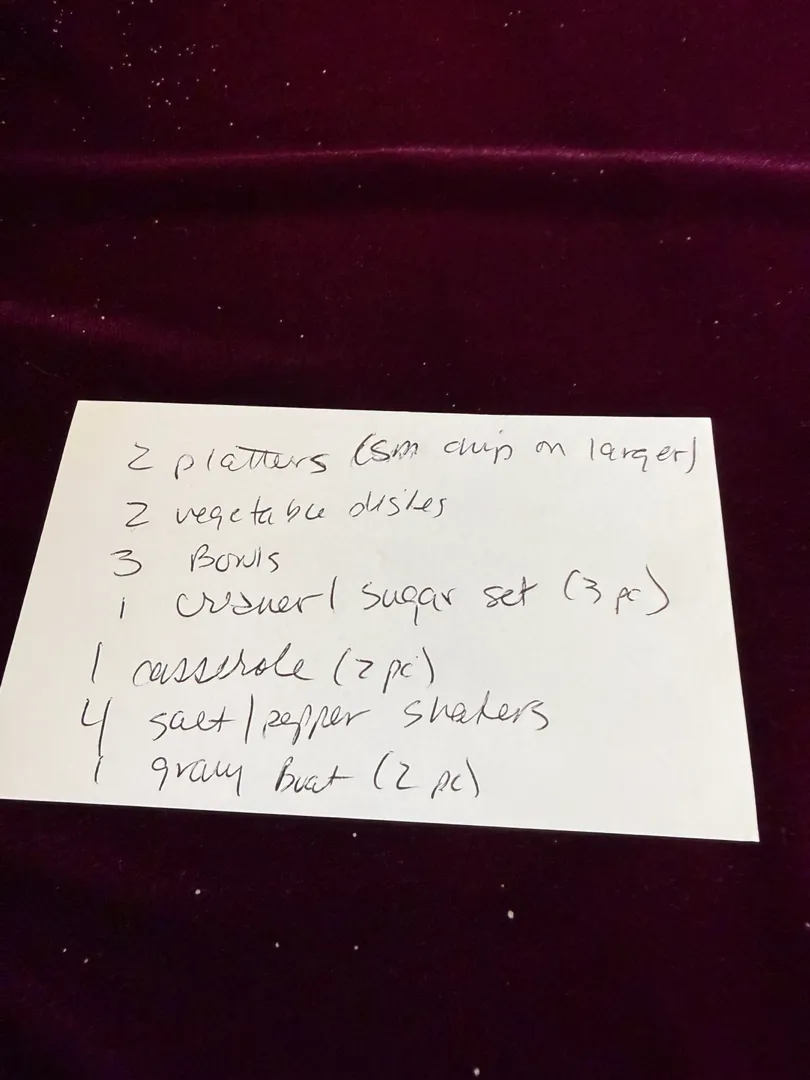 2 platters (sm chip on larger)
2 vegetable dishes
3 Bowls
1 creamer/ sugar set (3 pc)
1 casserole (2 pc)
4 salt/pepper shakers
1 gravy Boat (2 pc)